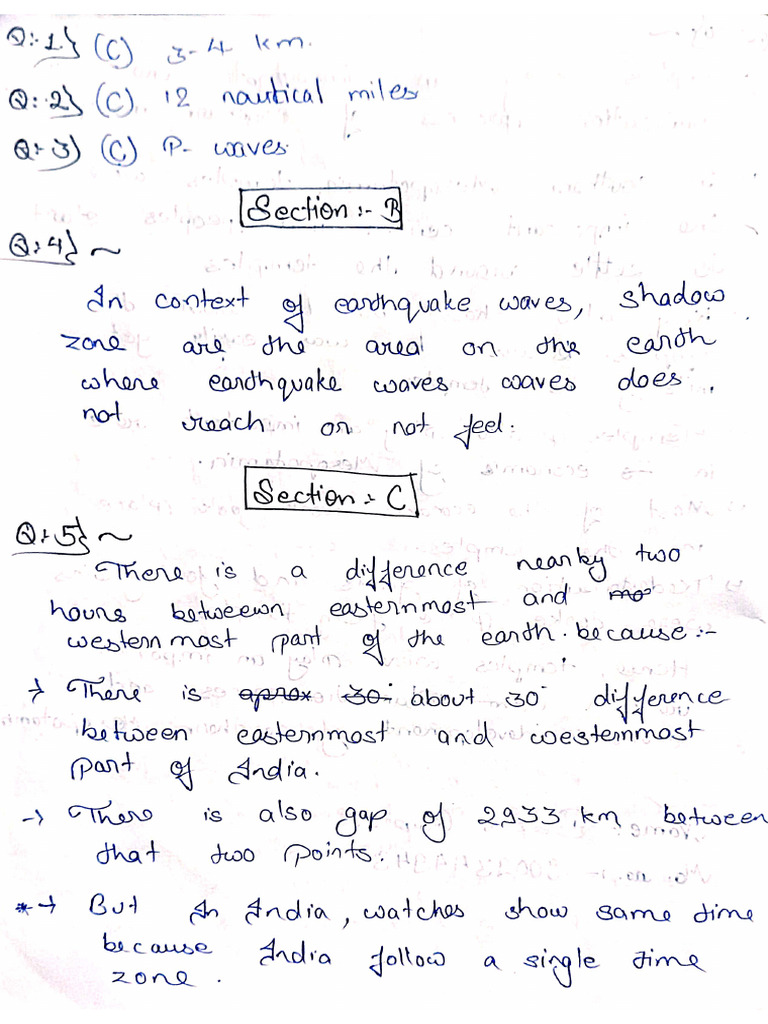 Q:-1.} (C) 3-4 km.
Q:-2} (C) 12 nautical miles
Q:-3) (C) P- waves.
Section:- B
Q:4} ~
In context of earthquake waves, shadow
zone are the areal on the earth
where earthquake waves waves does
not reach or not feel.
Section:- C
Q:5} ~
There is a difference nearky two
hours betweewn easternmost and mo
westernmost part of the earth. because:-
→ There is aprox 30° about 30° difference
between easternmost and westernmost
part of India.
→ There is also gap of 2933 km between
that two points.
*→ But In India, watches show same time
because India follow a single time
zone.